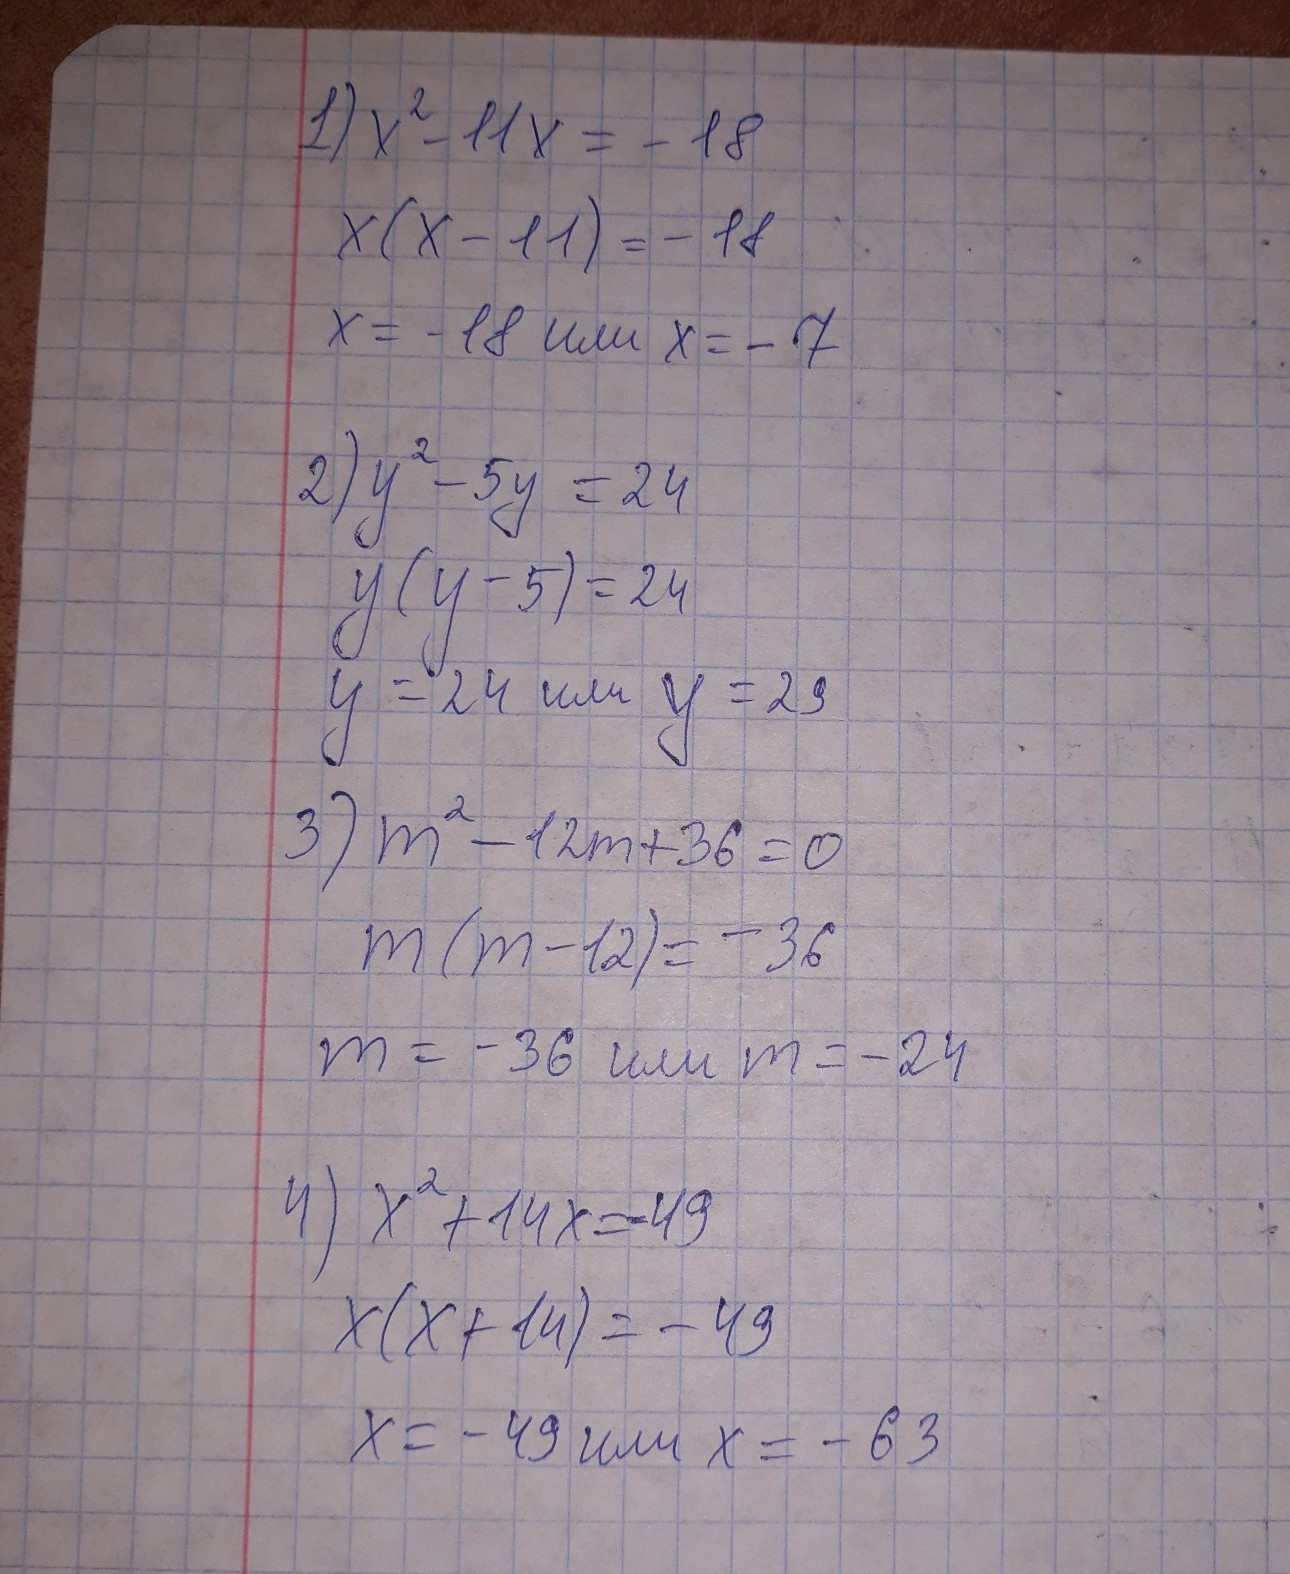 1) x² - 11x = - 18
x(x - 11) = - 18
x = - 18 или x = - 7
2) y² - 5y = 24
y(y - 5) = 24
y = 24 или y = 29
3) m² - 12m + 36 = 0
m(m - 12) = - 36
m = - 36 или m = - 24
4) x² + 14x = -49
x(x + 14) = - 49
x = - 49 или x = - 63